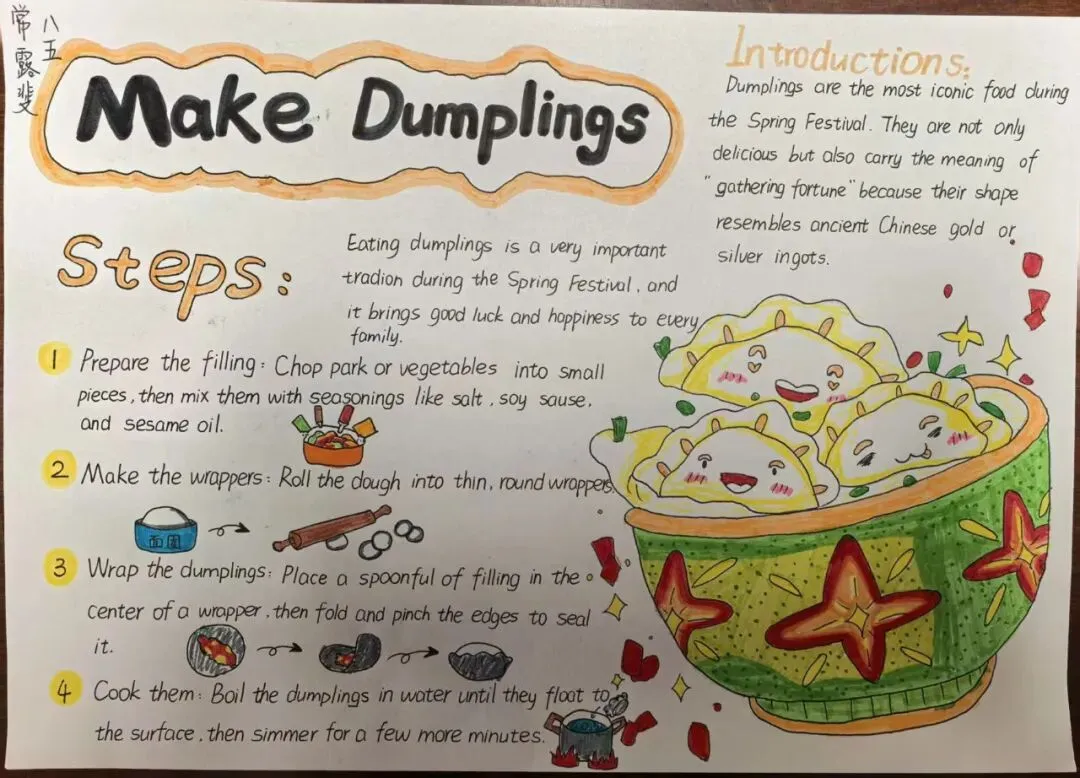 八五
常露斐
Make Dumplings
Introductions:
Dumplings are the most iconic food during
the Spring Festival. They are not only
delicious but also carry the meaning of
"gathering fortune" because their shape
resembles ancient Chinese gold or
silver ingots.
Steps:
Eating dumplings is a very important
tradion during the Spring Festival, and
it brings good luck and happiness to every
family.
1 Prepare the filling: Chop park or vegetables into small
pieces, then mix them with seasonings like salt, soy sause,
and sesame oil.
2 Make the wrappers: Roll the dough into thin, round wrappers.
面團
3 Wrap the dumplings: Place a spoonful of filling in the
center of a wrapper, then fold and pinch the edges to seal
it.
4 Cook them: Boil the dumplings in water until they float to
the surface, then simmer for a few more minutes.